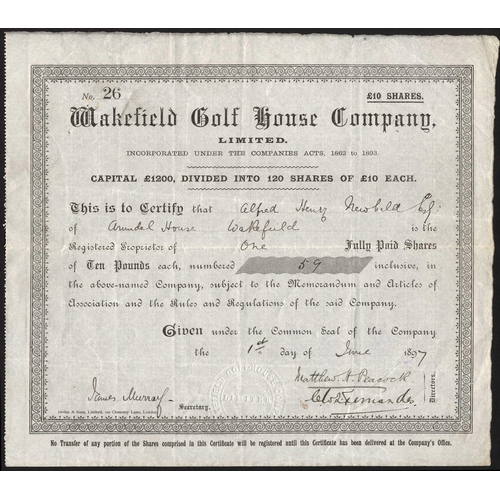 No. 26
£10 SHARES.
Wakefield Golf House Company,
LIMITED.
INCORPORATED UNDER THE COMPANIES ACTS, 1862 to 1893.
CAPITAL £1200, DIVIDED INTO 120 SHARES OF £10 EACH.
This is to Certify that Alfred Henry Newbald Esq:
of Arundel House Wakefield is the
Registered Proprietor of One Fully Paid Shares
of Ten Pounds each, numbered 59 inclusive, in
the above-named Company, subject to the Memorandum and Articles of
Association and the Rules and Regulations of the said Company.
Given under the Common Seal of the Company
the 1st day of June 1897
Matthew H. Peacock
Directors.
James Murray
Secretary.
& Sons, Limited, Chancery Lane, London
No Transfer of any portion of the Shares comprised in this Certificate will be registered until this Certificate has been delivered at the Company's Office.